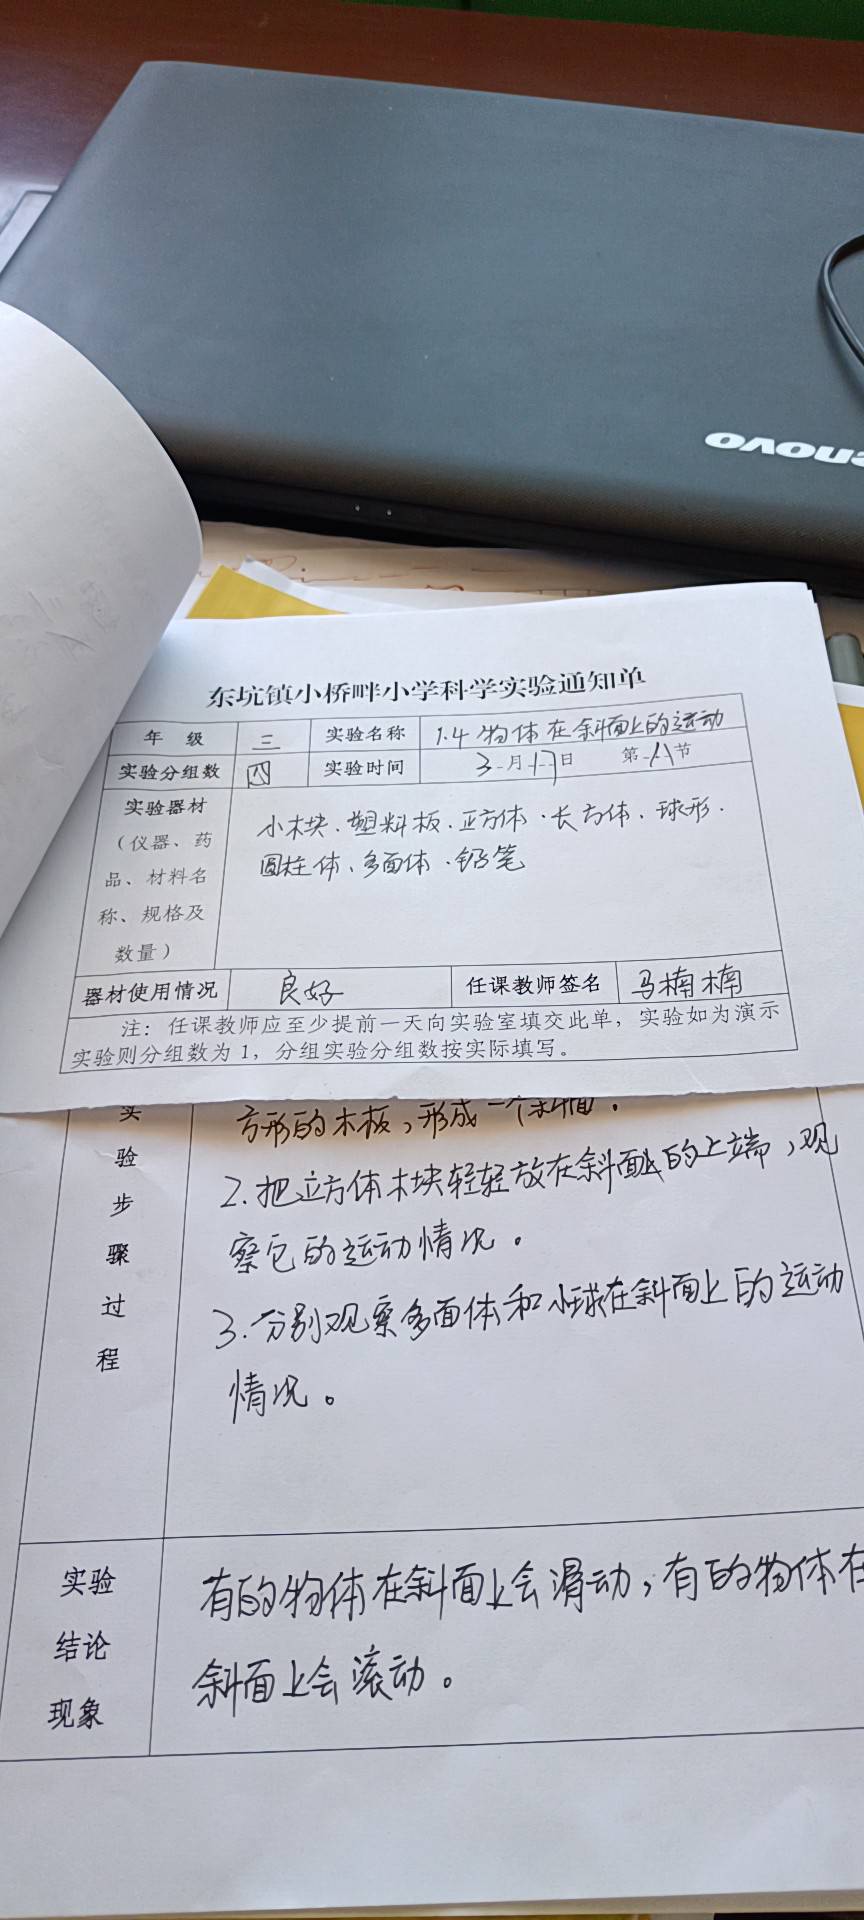 enovo
东坑镇小桥畔小学科学实验通知单
年 级 三 实验名称 1.4 物体在斜面上的运动
实验分组数 四 实验时间 3月17日 第八节
实验器材 小木块、塑料板、正方体、长方体、球形、
(仪器、药 圆柱体、多面体、铅笔
品、材料名
称、规格及
数量)
器材使用情况 良好 任课教师签名 马楠楠
注：任课教师应至少提前一天向实验室填交此单，实验如为演示
实验则分组数为1，分组实验分组数按实际填写。
实验步骤过程
方形的木板，形成一个斜面。
2.把立方体木块轻轻放在斜面的上端，观
察它的运动情况。
3.分别观察多面体和小球在斜面上的运动
情况。
实验结论现象
有的物体在斜面上会滑动，有的物体在
斜面上会滚动。